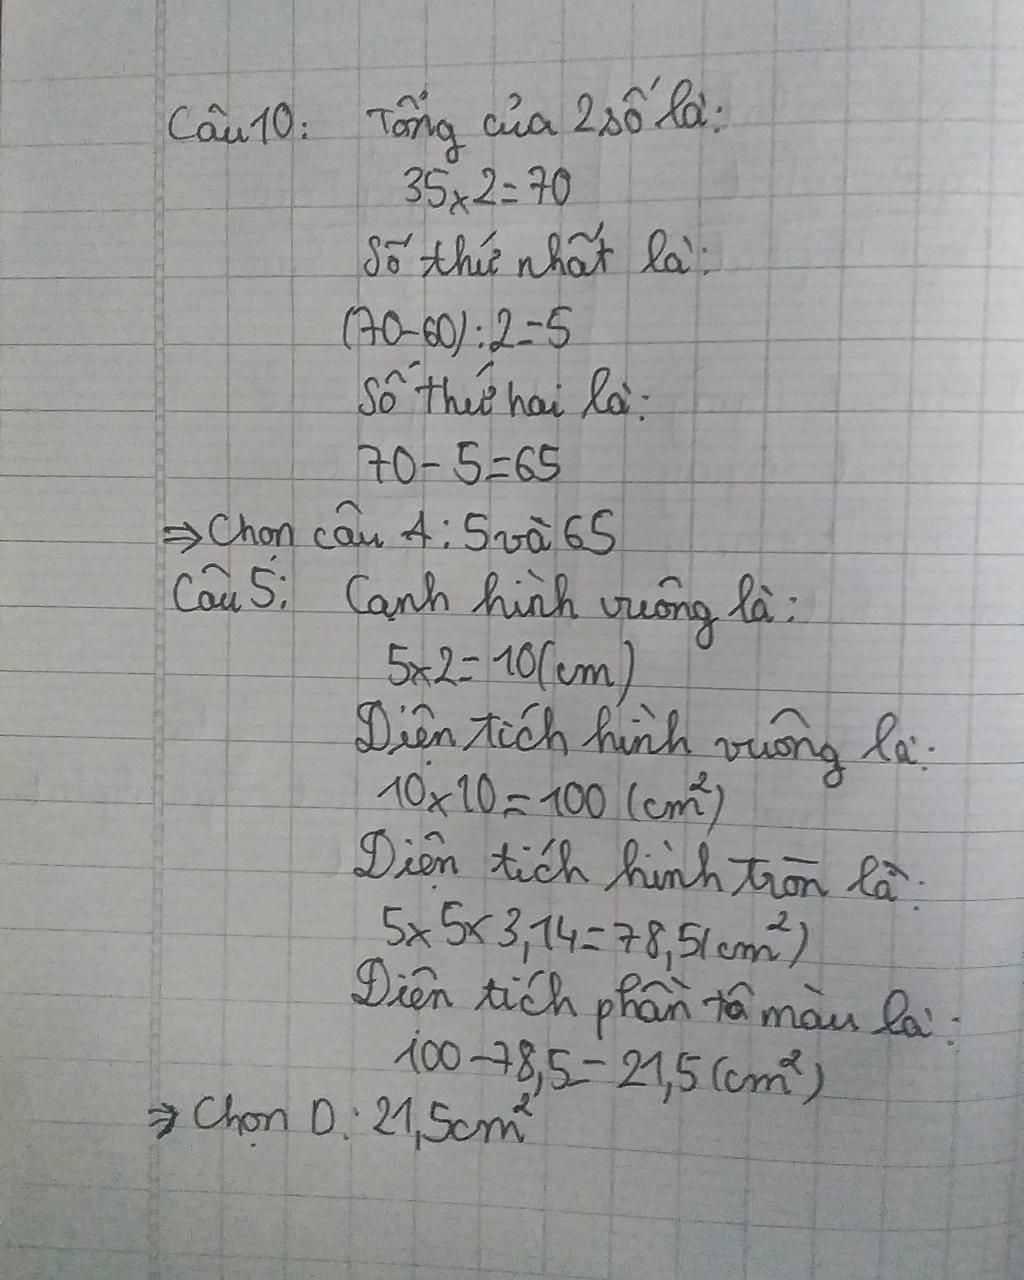 Câu 10: Tổng của 2 số là:
35 x 2 = 70
Số thứ nhất là:
(70-60) : 2 = 5
Số thứ hai là:
70 - 5 = 65
⇒ Chọn câu A: 5 và 65
Câu 5: Cạnh hình vuông là:
5 x 2 = 10 (cm)
Diện tích hình vuông là:
10 x 10 = 100 (cm²)
Diện tích hình tròn là:
5 x 5 x 3,14 = 78,5 (cm²)
Diện tích phần tô màu là:
100 - 78,5 = 21,5 (cm²)
⇒ Chọn D: 21,5cm²